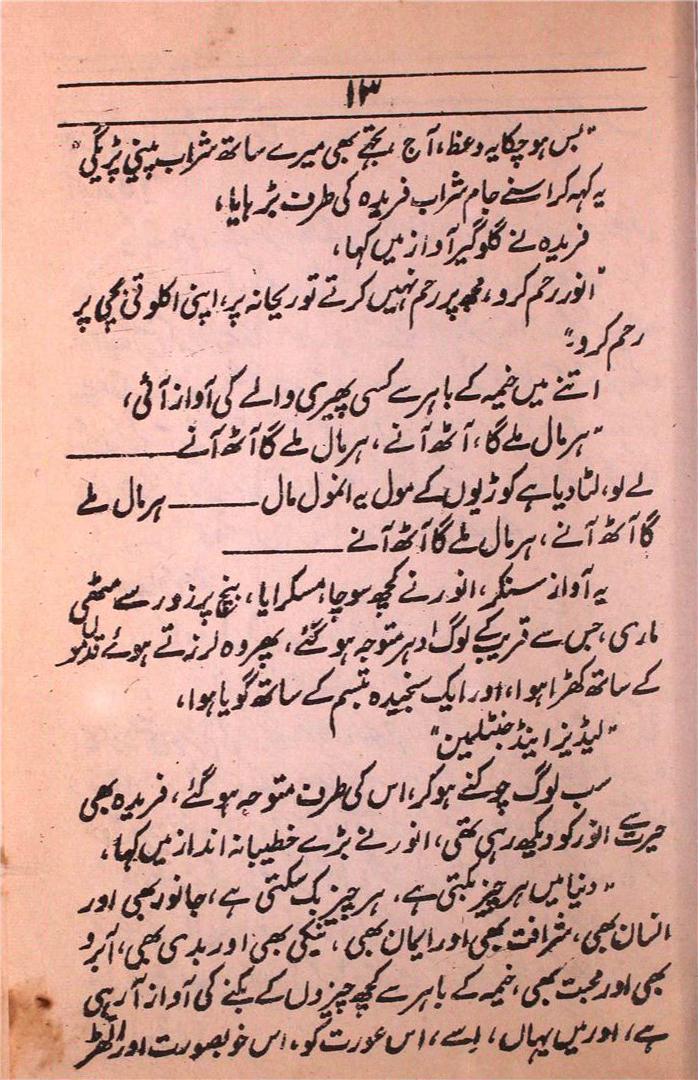 ۱۳
"بس ہوچکا یہ وعظ، آج تجھے بھی میرے ساتھ شراب پینی پڑیگی"
یہ کہہ کر اسنے جام شراب فریدہ کی طرف بڑہایا،
فریدہ نے گلوگیر آواز میں کہا،
"انور رحم کرو، مجھ پر رحم نہیں کرتے تو ریحانہ پر، اپنی اکلوتی بچی پر
رحم کرو:"
اتنے میں خیمہ کے باہر سے کسی پھیری والے کی آواز آئی،
"ہر مال ملے گا، آٹھ آنے، ہر مال ملے گا آٹھ آنے ———
لے لو، لٹا دیا ہے کوڑیوں کے مول یہ انمول مال ——— ہر مال ملے
گا آٹھ آنے، ہر مال ملے گا آٹھ آنے ———
یہ آواز سنکر، انور نے کچھ سوچا، مسکرایا، بنچ پر زور سے مٹھی
ماری، جس سے قریب کے لوگ ادہر متوجہ ہوگئے، پھر وہ لرزتے ہوئے قدموں
کے ساتھ کھڑا ہوا، اور ایک سنجیدہ تبسم کے ساتھ گویا ہوا،
"لیڈیز اینڈ جنٹلمین"
سب لوگ چوکنے ہوکر، اس کی طرف متوجہ ہوگئے، فریدہ بھی
حیرت سے انور کو دیکھ رہی تھی، انور نے بڑے خطیبانہ انداز میں کہا،
"دنیا میں ہر چیز بکتی ہے، ہر چیز بک سکتی ہے، جانور بھی اور
انسان بھی، شرافت بھی اور ایمان بھی، نیکی بھی اور بدی بھی، آبرو
بھی اور محبت بھی، خیمہ کے باہر سے کچھ چیزوں کے بکنے کی آواز آرہی
ہے، اور میں یہاں، اسے، اس عورت کو، اس خوبصورت اور الھڑ